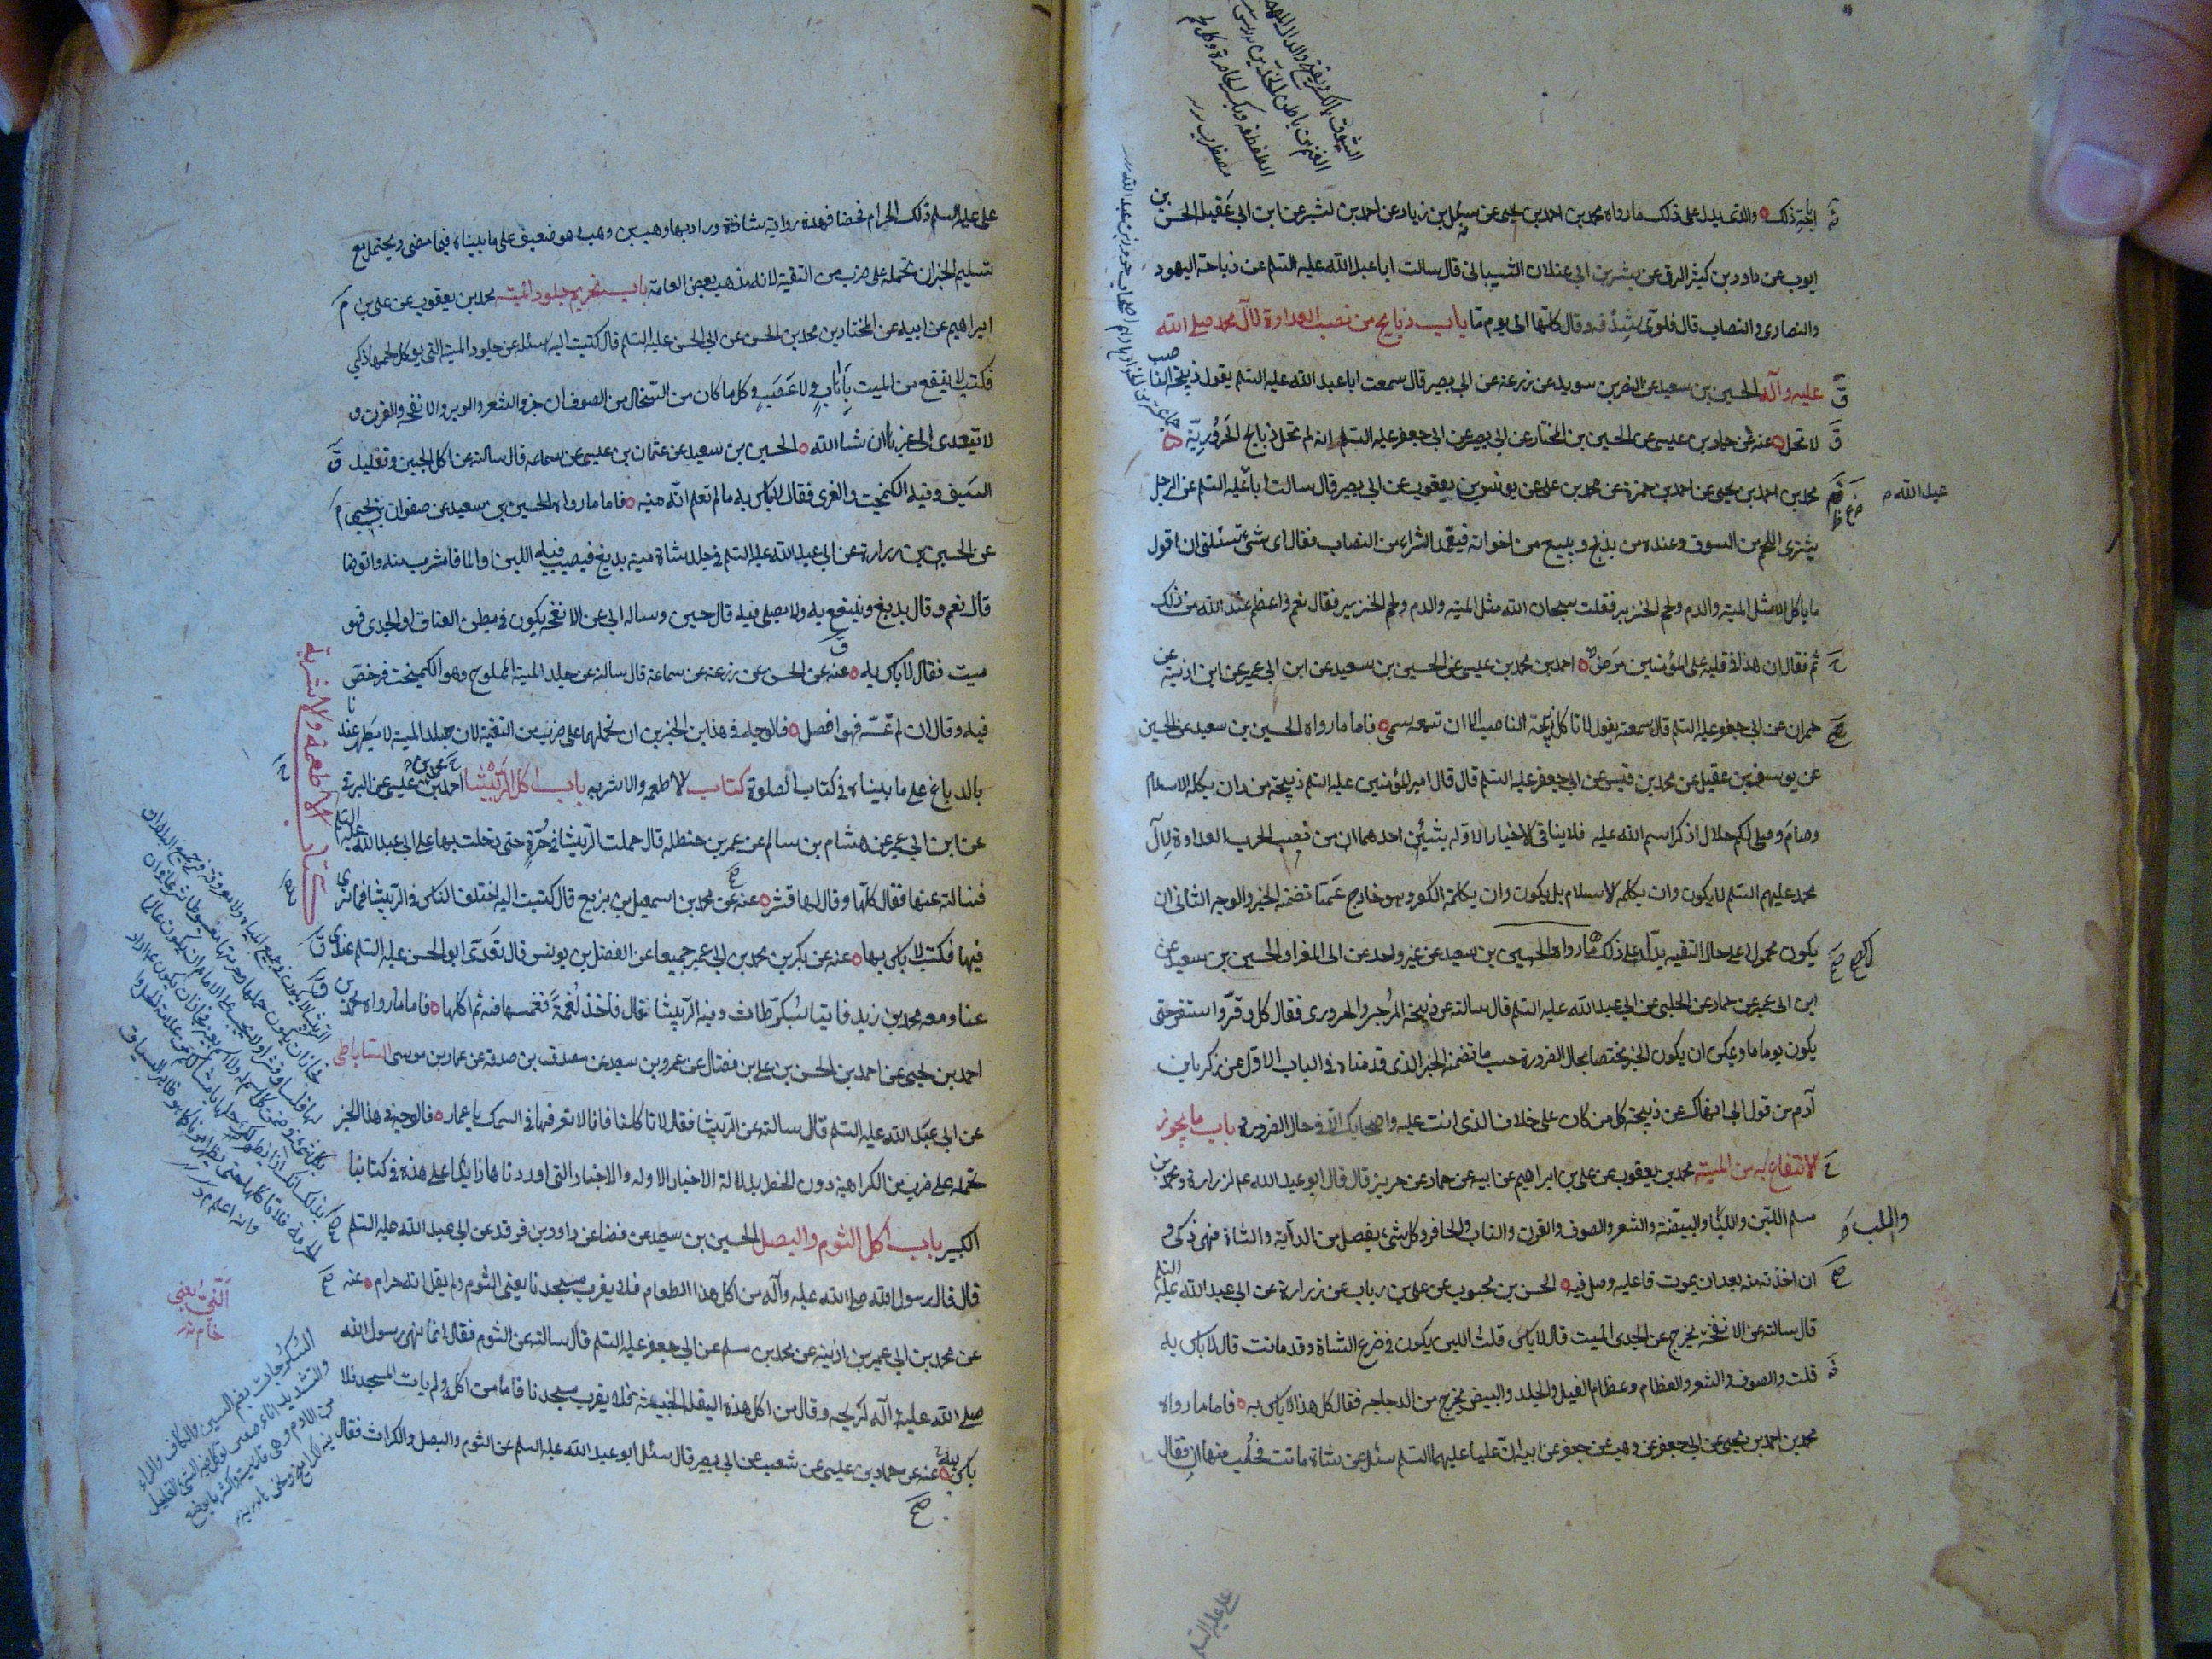 ابحة ذلك والذي يدل على ذلك ما رواه محمد بن احمد بن يحيى عن سهل بن زياد عن احمد بن بشير عن ابن ابي عقيلة الحسن بن
ايوب عن داود بن كثير الرقي عن بشر بن ابي غيلان الشيباني قال سالت ابا عبد الله عليه السلم عن ذباحة اليهود
والنصارى والنصاب قال فلوى شدقه وقال كلها الى يوم ما باب ذبايح من نصب العداوة لآل محمد صلى الله
عليه وآله الحسين بن سعيد عن النضر بن سويد عن زرعة عن ابي بصير قال سمعت ابا عبد الله عليه السلم يقول ذبيحة الناصب
لا تحل عنه عن حماد بن عيسى عن الحسين بن المختار عن ابي بصير عن ابي جعفر عليه السلم انه لم تحل ذبايح الحرورية
محمد بن احمد بن يحيى عن احمد بن حمزة عن محمد بن على عن يونس بن يعقوب عن ابي بصير قال سالت ابا عليه السلم عن الرجل
عبد الله
يشترى اللحم من السوق وعنده من يذبح ويبيع من اخوانه فيتعمد الشراء من النصاب فقال اى شئ تسئلنى ان اقول
ما ياكل الا مثل الميتة والدم ولحم الخنزير فقلت سبحان الله مثل الميتة والدم ولحم الخنزير فقال نعم واعظم عند الله من ذلك
ثم فقال ان هذا في قلبه على المؤمنين مرض احمد بن محمد بن عيسى عن الحسين بن سعيد عن ابن ابي عمير عن ابن اذينة عن
حمران عن ابي جعفر عليه السلم قال سمعته يقول لا تاكل ذبيحة الناصب الا ان تسمعه يسمى فاما ما رواه الحسين بن سعيد عن الحسين
عن يوسف بن عقيل عن محمد بن قيس عن ابي جعفر عليه السلم قال قال امير المؤمنين عليه السلم ذبيحة من دان بكلمة الاسلام
وصام وصلى لكم حلال اذا ذكر اسم الله عليه فلا ينافي الاخبار الاولة بشيئين احدهما ان من نصب الحرب العداوة لآل
محمد عليهم السلم لا يكون دان بكلمة الاسلام بل يكون دان بكلمة الكفر وهو خارج عما تضمنه الخبر والوجه الثانى ان
يكون محمولا على حال التقية يدل على ذلك ما رواه الحسين بن سعيد عن غير واحد عن ابي المغرا والحسين بن سعيد عن
ابن ابي عمير عن حماد عن الحلبي عن ابي عبد الله عليه السلم قال سالته عن ذبيحة المرجئ والحرورى فقال كل وقر واستقر حتى
يكون يوما ما ويمكن ان يكون الخبر مختصا بحال الضرورة حسب ما تضمنه الخبر الذى قدمناه في الباب الاول عن زكريا بن
آدم من قول ابي انهاك عن ذبيحة كل من كان على خلاف الذى انت عليه واصحابك الا في حال الضرورة باب ما يجوز
الانتفاع به من الميتة محمد بن يعقوب عن على بن ابراهيم عن ابيه عن حماد عن حريز قال قال ابو عبد الله عم لزرارة ومحمد بن
مسلم اللبن واللبا والبيضة والشعر والصوف والقرن والناب والحافر وكل شئ يفصل من الدابة والشاة فهى ذكى و
ان اخذته منه بعد ان يموت فاغسله وصل فيه الحسن بن محبوب عن على بن رباب عن زرارة عن ابي عبد الله عليه السلم
قال سالته عن الانفحة تخرج عن الجدى الميت قال لا باس قلت اللبن يكون في ضرع الشاة وقد ماتت قال لا باس به
قلت والصوف والشعر والعظام وعظام الفيل والجلد والبيض يخرج من الدجاجه فقال كل هذا لا باس به فاما ما رواه
محمد بن احمد بن يحيى عن ابي جعفر عن وهب عن جعفر عن ابيه ان عليا عليهما السلم سئل عن شاة ماتت فحلب منها لبن فقال
على عليه السلم
على عليه السلم ذلك الحرام محضا فهذه رواية شاذة وراويها وهب بن وهب وهو ضعيف على ما بيناه فيما مضى ويحتمل مع
تسليم الخبر ان نحمله على ضرب من التقية لانه مذهب بعض العامة باب تحريم جلود الميتة محمد بن يعقوب عن على بن
ابراهيم عن ابيه عن المختار بن محمد بن الحسن عن ابي الحسن عليه السلم قال كتبت اليه اسئله عن جلود الميتة التى يوكل لحمها ذكي
فكتب لا ينتفع من الميت باهاب ولا عصب وكل ما كان من السخال من الصوف ان جز والشعر والوبر والانفحة والقرن و
لا تتعدى الى غيرها ان شا الله الحسين بن سعيد عن عثمان بن عيسى عن سماعه قال سالته عن اكل الجبن وتقليد
السيف وفيه الكيمخت والغرى فقال لا باس به ما لم تعلم انه ميته فاما ما رواه الحسين بن سعيد عن صفوان بن يحيى
عن الحسين بن زرارة عن ابي عبد الله عليه السلم في جلد شاة ميتة يدبغ فيصب فيه اللبن او الما فاشرب منه واتوضا
قال نعم وقال يدبغ وينتفع به ولا يصلى فيه قال حسين وساله ابي عن الانفحة يكون في بطن العناق او الجدى فهو
ميت فقال لا باس به عنه عن الحسن عن زرعة عن سماعة قال سالته عن جلد الميتة المملوح وهو الكيمخت فرخص
فيه وقال ان لم تمسه فهو افضل فالوجه في هذين الخبرين ان نحملهما على ضرب من التقية لان جلد الميتة لا يطهر عندنا
بالدباغ على ما بيناه في كتاب الصلوة كتاب الاطعمه والاشربه باب اكل الربيثا احمد بن عيسى عن البرقى
عن ابن ابي عمير عن هشام بن سالم عن عمر بن حنظله قال حملت الربيثا في صرة حتى دخلت بها على ابي عبد الله عليه السلم
فسالته عنها فقال كلها وقال لها قشر عنه عن محمد بن اسمعيل بن بزيع قال كتبت اليه اختلف الناس في الربيثا فما تامرنى
فيها فكتب لا باس بها عنه عن بكر بن محمد بن ابي عمير جميعا عن الفضل بن يونس قال تغدى ابو الحسن عليه السلم عندى
عنا ومعه محمد بن زيد فاتيا بسكرجات وفيه الربيثا فقال فاخذ لقمة فغمسها فيه ثم اكلها فاما ما رواه محمد بن
احمد بن يحيى عن احمد بن الحسن بن على بن فضال عن عمرو بن سعيد عن مصدق بن صدقة عن عمار بن موسى الساباطى
عن ابي عبد الله عليه السلم قال سالته عن الربيثا فقال لا تاكلها فانا لا نعرفها في السمك يا عمار فالوجه في هذا الخبر
نحمله على ضرب من الكراهية دون الحظر بدلالة الاخبار الاوله والاخبار التى اوردناها زايدا على هذه في كتابنا
الكبير باب اكل الثوم والبصل الحسين بن سعيد عن فضاله عن داود بن فرقد عن ابي عبد الله عليه السلم
قال قال رسول الله صلى الله عليه وآله من اكل هذا الطعام فلا يقرب مسجدنا يعنى الثوم ولم يقل انه حرام عنه
عن محمد بن ابي عمير بن اذينه عن محمد بن مسلم عن ابي جعفر عليه السلم قال سالته عن الثوم فقال انما نهى رسول الله
صلى الله عليه آله لريحه وقال من اكل هذه البقلة الخبيثة فلا يقرب مسجدنا فاما من اكله ولم يات المسجد فلا
باس عنه عن حماد بن عيسى عن شعيب عن ابي بصير قال سئل ابو عبد الله عليه السلم عن الثوم والبصل والكراث فقال
كتاب الاطعمة والاشربة
النى يعنى
خام
السكرجات بضم السين والكاف والراء
والتشديد اناء صغير يوكل فيه الشئ القليل
من الادم وهى فارسية